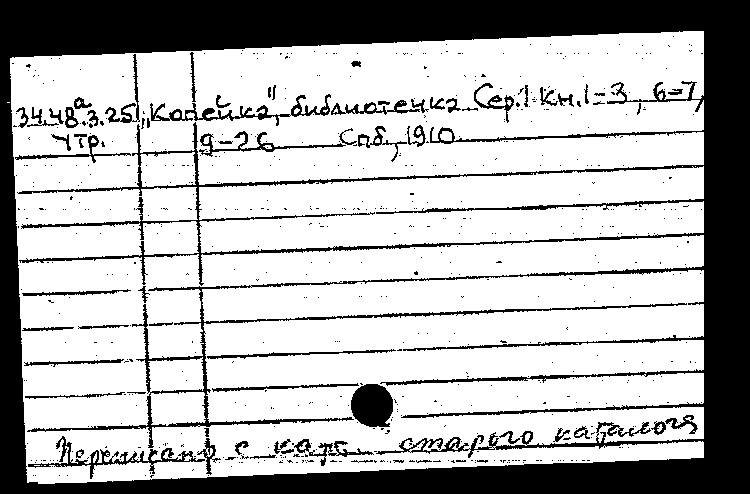 34.48ᵃ.3.251 „Копейка", библиотечка Сер.1 Кн.1-3, 6-7,
утр. 9-26 Спб., 1910
Переписано с карт. старого каталога